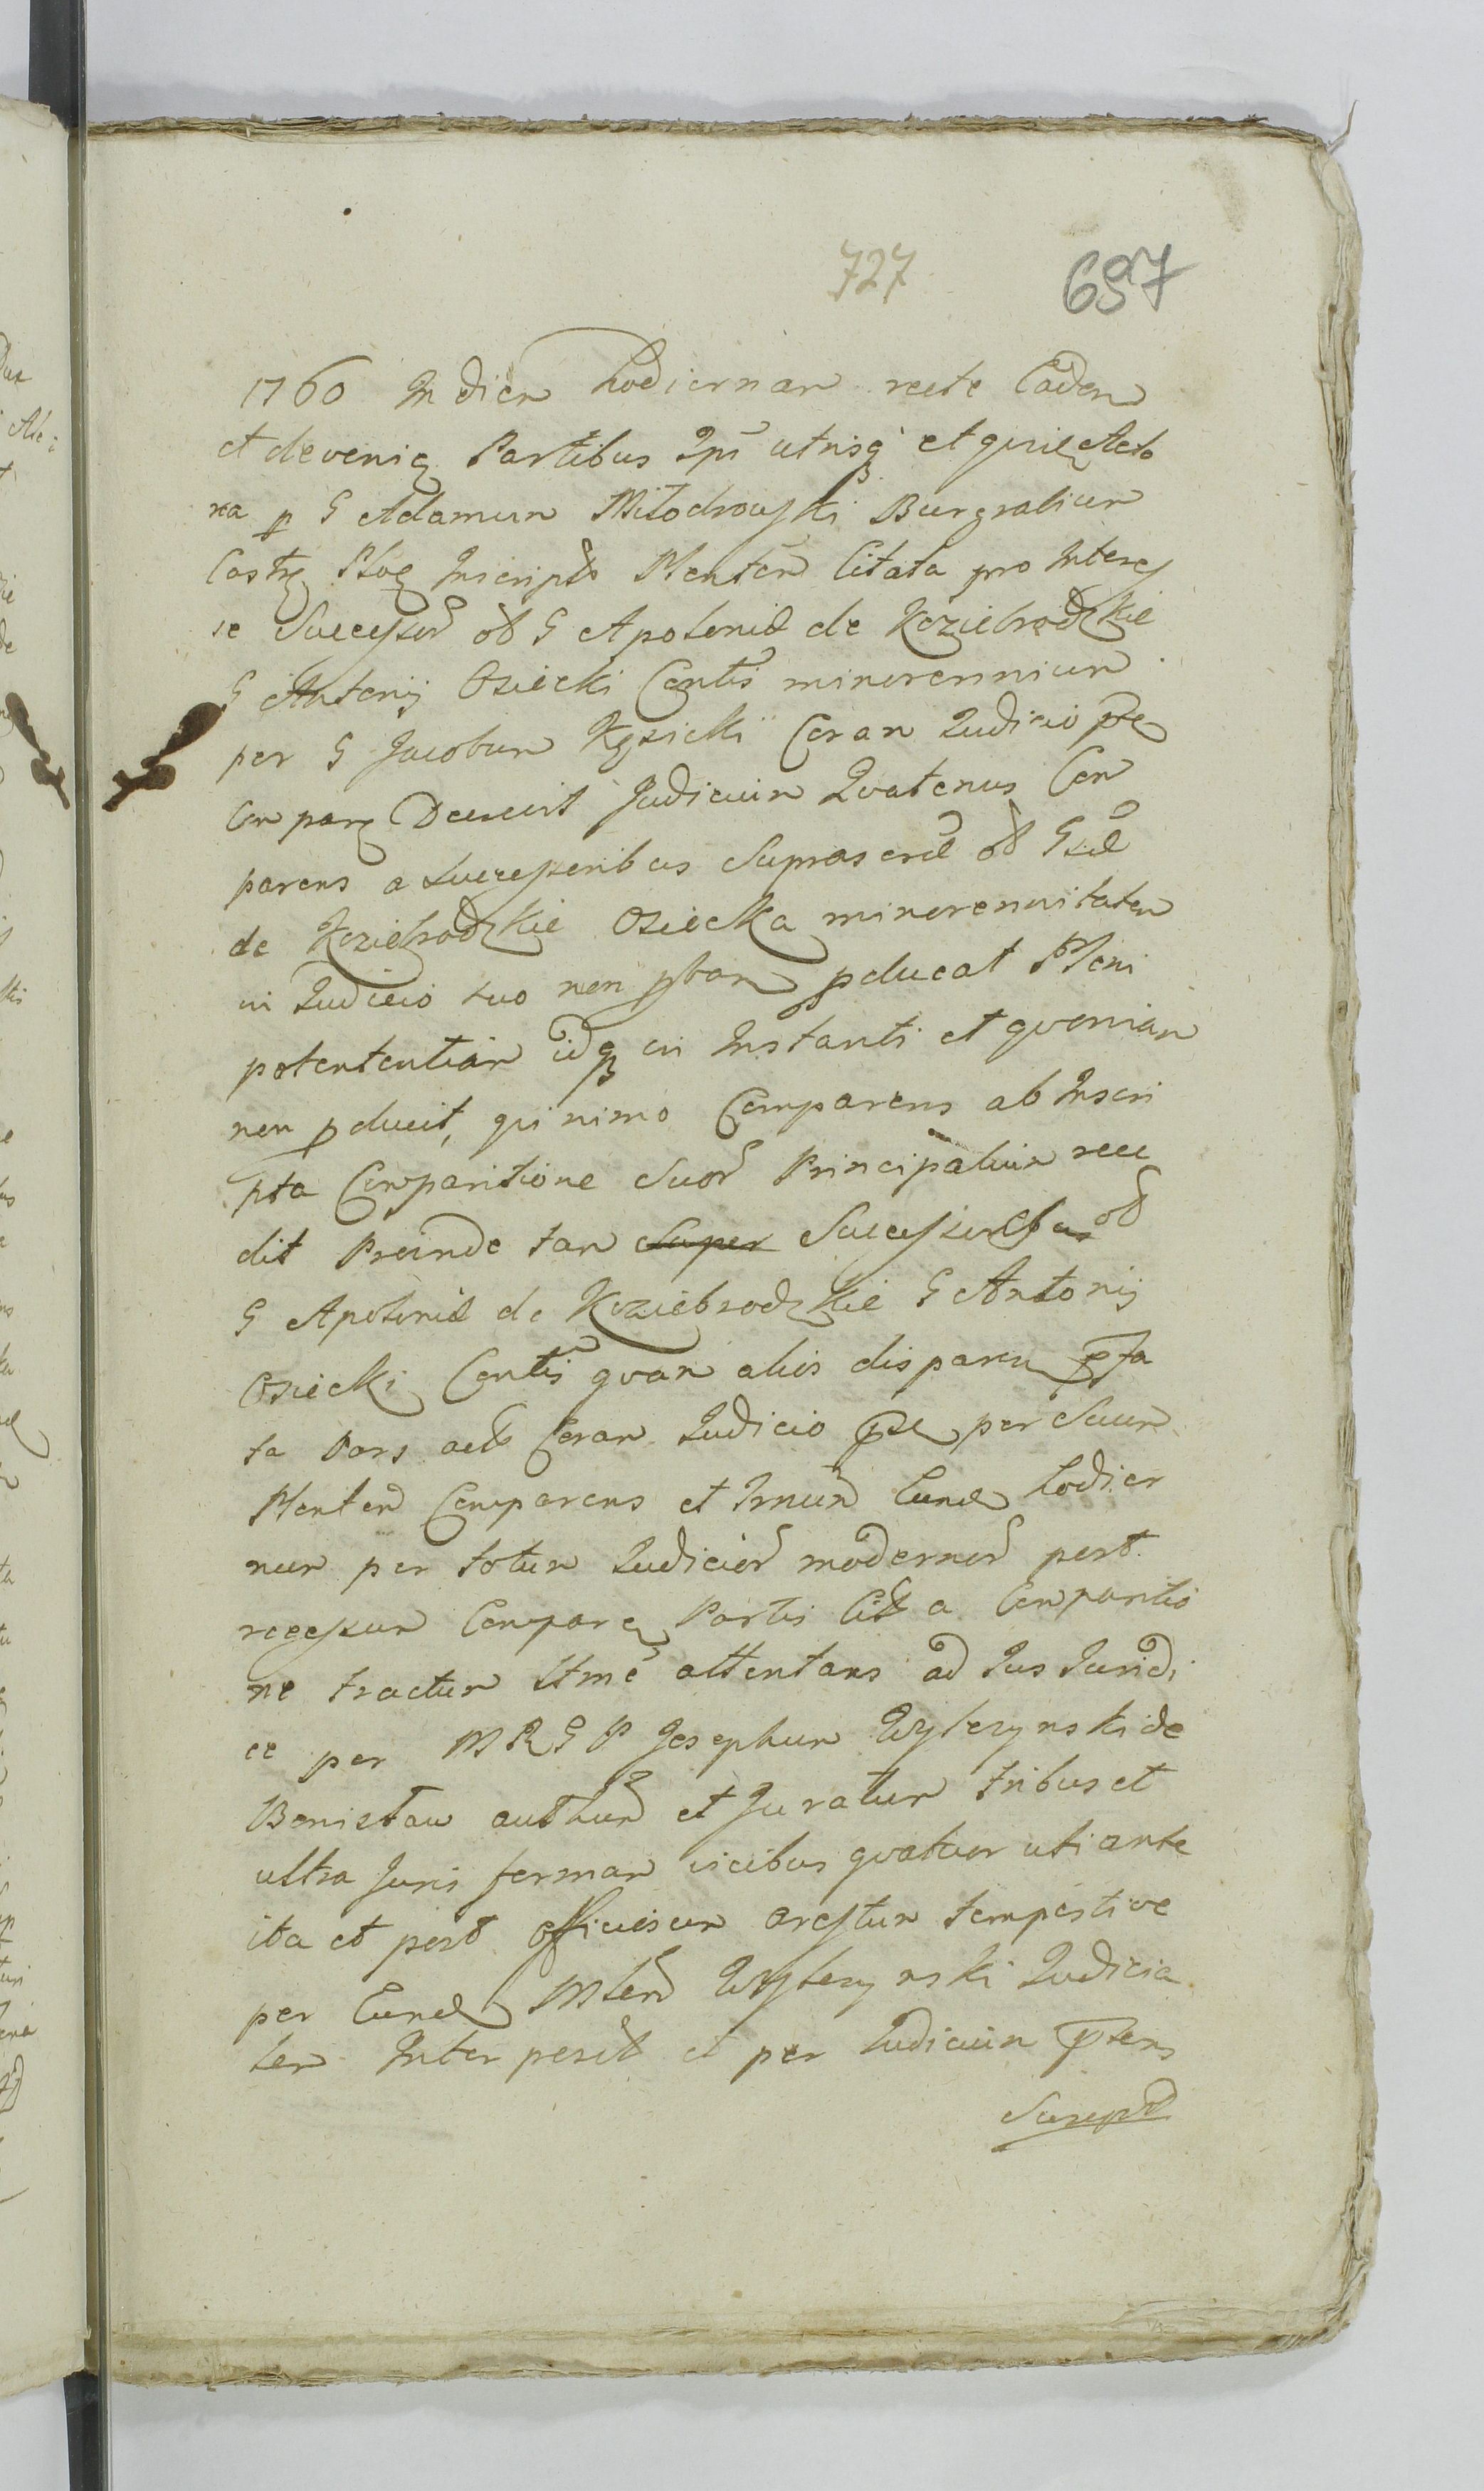 727 697
1760 In diem hodiernam recte Caden
et deveniꝫ Partibus Ipĩs utrisqꝫ et quidꝫ Acto
rea p G Adamum Miłodrowski Burgrabium
Castrꝫ Płoꝫ Inscript Plenten Citata pro Interes
se Successor ol G Apolonia de Koziebrodzkie
G Antonij Osiecki Contĩs minorennium
per G Jacobum Kęsicki Coram Judicio
Comparꝫ Decrevit Judicium Quatenus Com
parens a successoribus Suprascrd ol Gsd
de Koziebrodzkie Osiecka minorennitatem
in Judicio suo non pducat Pleni
potententiam idqꝫ in Instanti et quoniam
non pducit, quinimo Comparens ab Inscri
pta Comparitione Suor Principalium rece
dit Proinde tam Super Successorbus ol
G Apolonia de Koziebrodzkie G Antonij
Osiecki Contĩs quam aliis disparen pfa
ta Pars act Coram Judicio pse per Suum
Plenten Comparens et Trnum Eund hodier
num per totum Judicior modernor post
recessum Comparꝫ Partis Cit a Comparitio
ne tractum Ltmẽ attentans ad Jus Juridi
ce per M R G P Josephum Wylezynski de
Bonisław authum et Juratum tribus et
ultra Juris formam vicibus quatuor uti ante
ita et post officiosum arestum tempestive
per Eund Mlem Wylezynski Judicia
ter Interposit et per Judicium pttens
Suscept